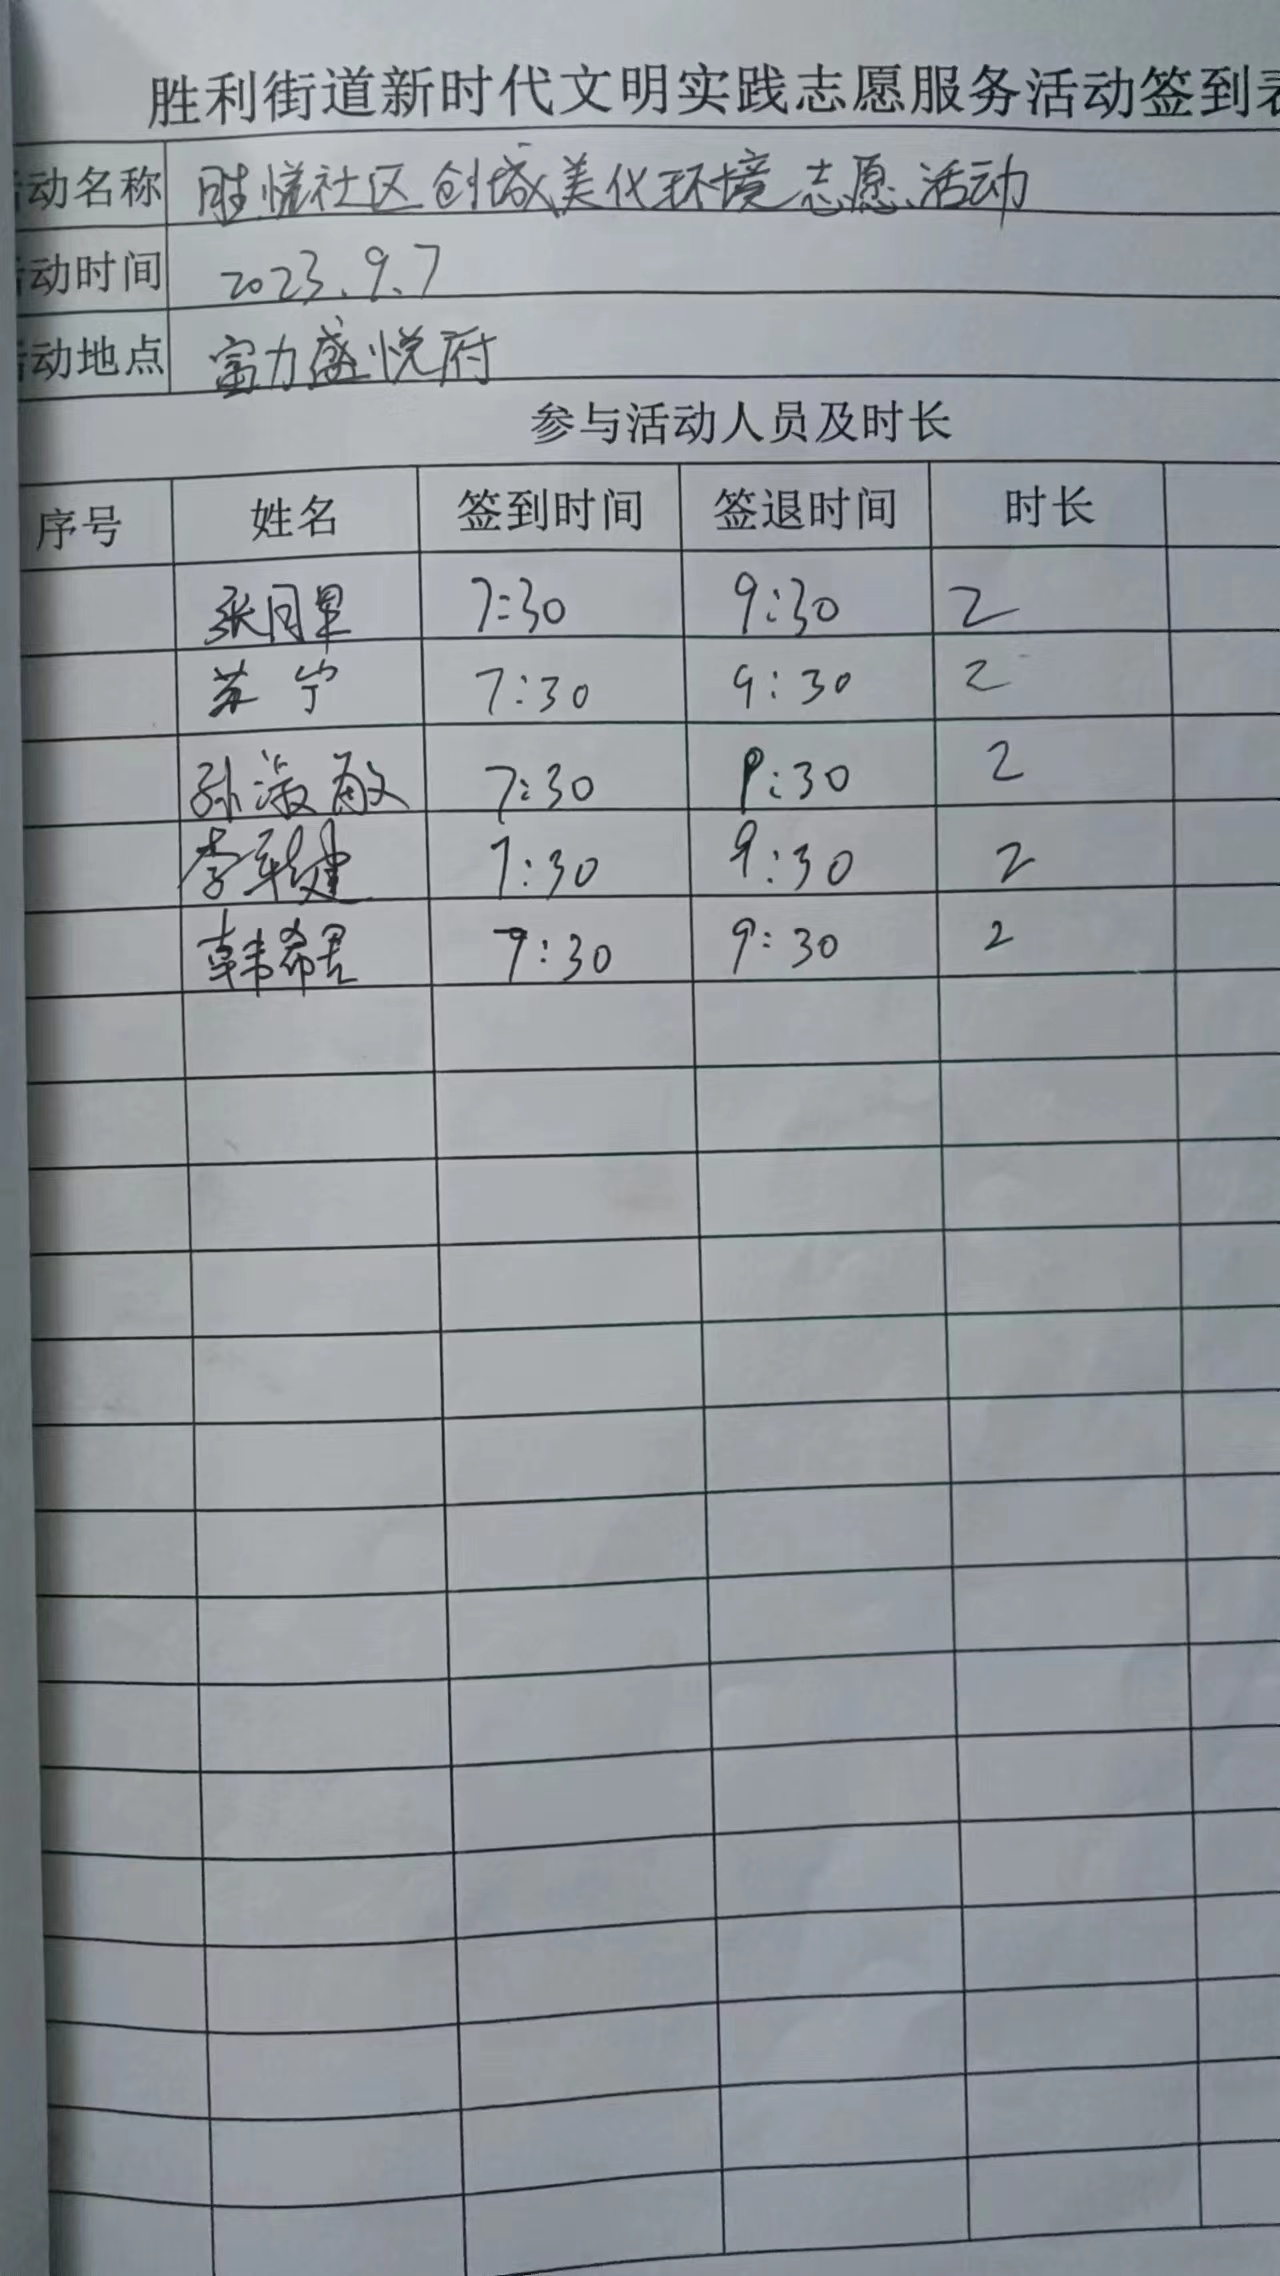 胜利街道新时代文明实践志愿服务活动签到表
活动名称 胜悦社区创城美化环境志愿活动
活动时间 2023.9.7
活动地点 富力盛悦府
参与活动人员及时长
序号 姓名 签到时间 签退时间 时长
7:30 9:30 2
苏宁 7:30 9:30 2
孙淑敏 7:30 9:30 2
7:30 9:30 2
韩希君 7:30 9:30 2